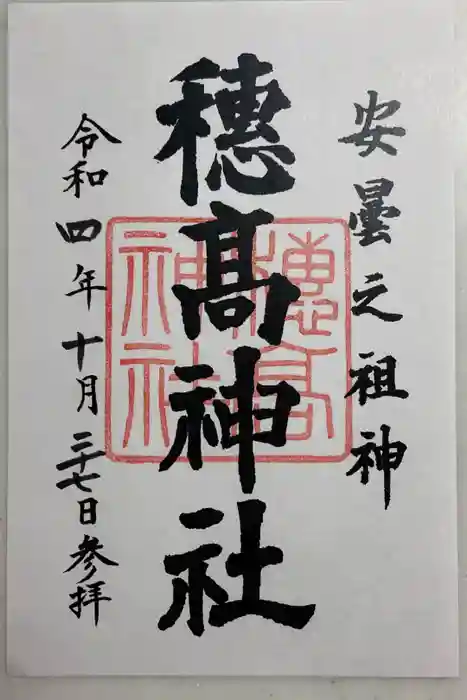 安曇之祖神
穂髙神社
穂高神社
令和四年十月二十七日参拝